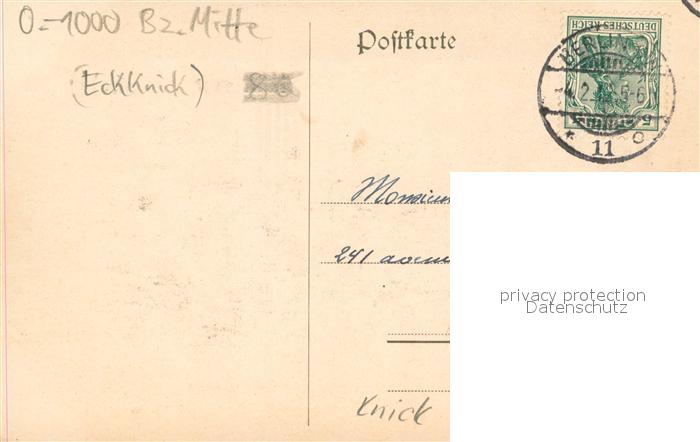 O.-1000 Bz. Mitte
(Eckknick)
Postkarte
DEUTSCHES REICH
BERLIN
5-6
11
Monsieur
241
privacy protection
Datenschutz
Knick